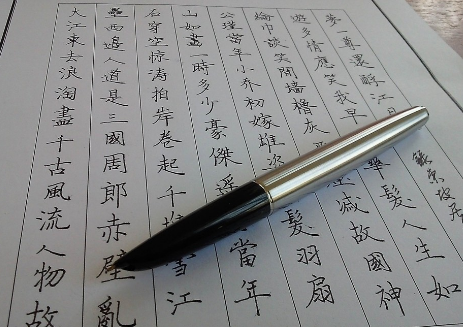 大江東去浪淘盡千古風流人物故
壘西邊人道是三國周郎赤壁亂
石穿空惊涛拍岸卷起千雪江
山如畫一時多少豪傑遥當年
公瑾當年小乔初嫁雄姿髮羽扇
綸巾談笑間墻櫓灰滅故國神
遊多情應笑我早華髮人生如
夢一尊還酹江月